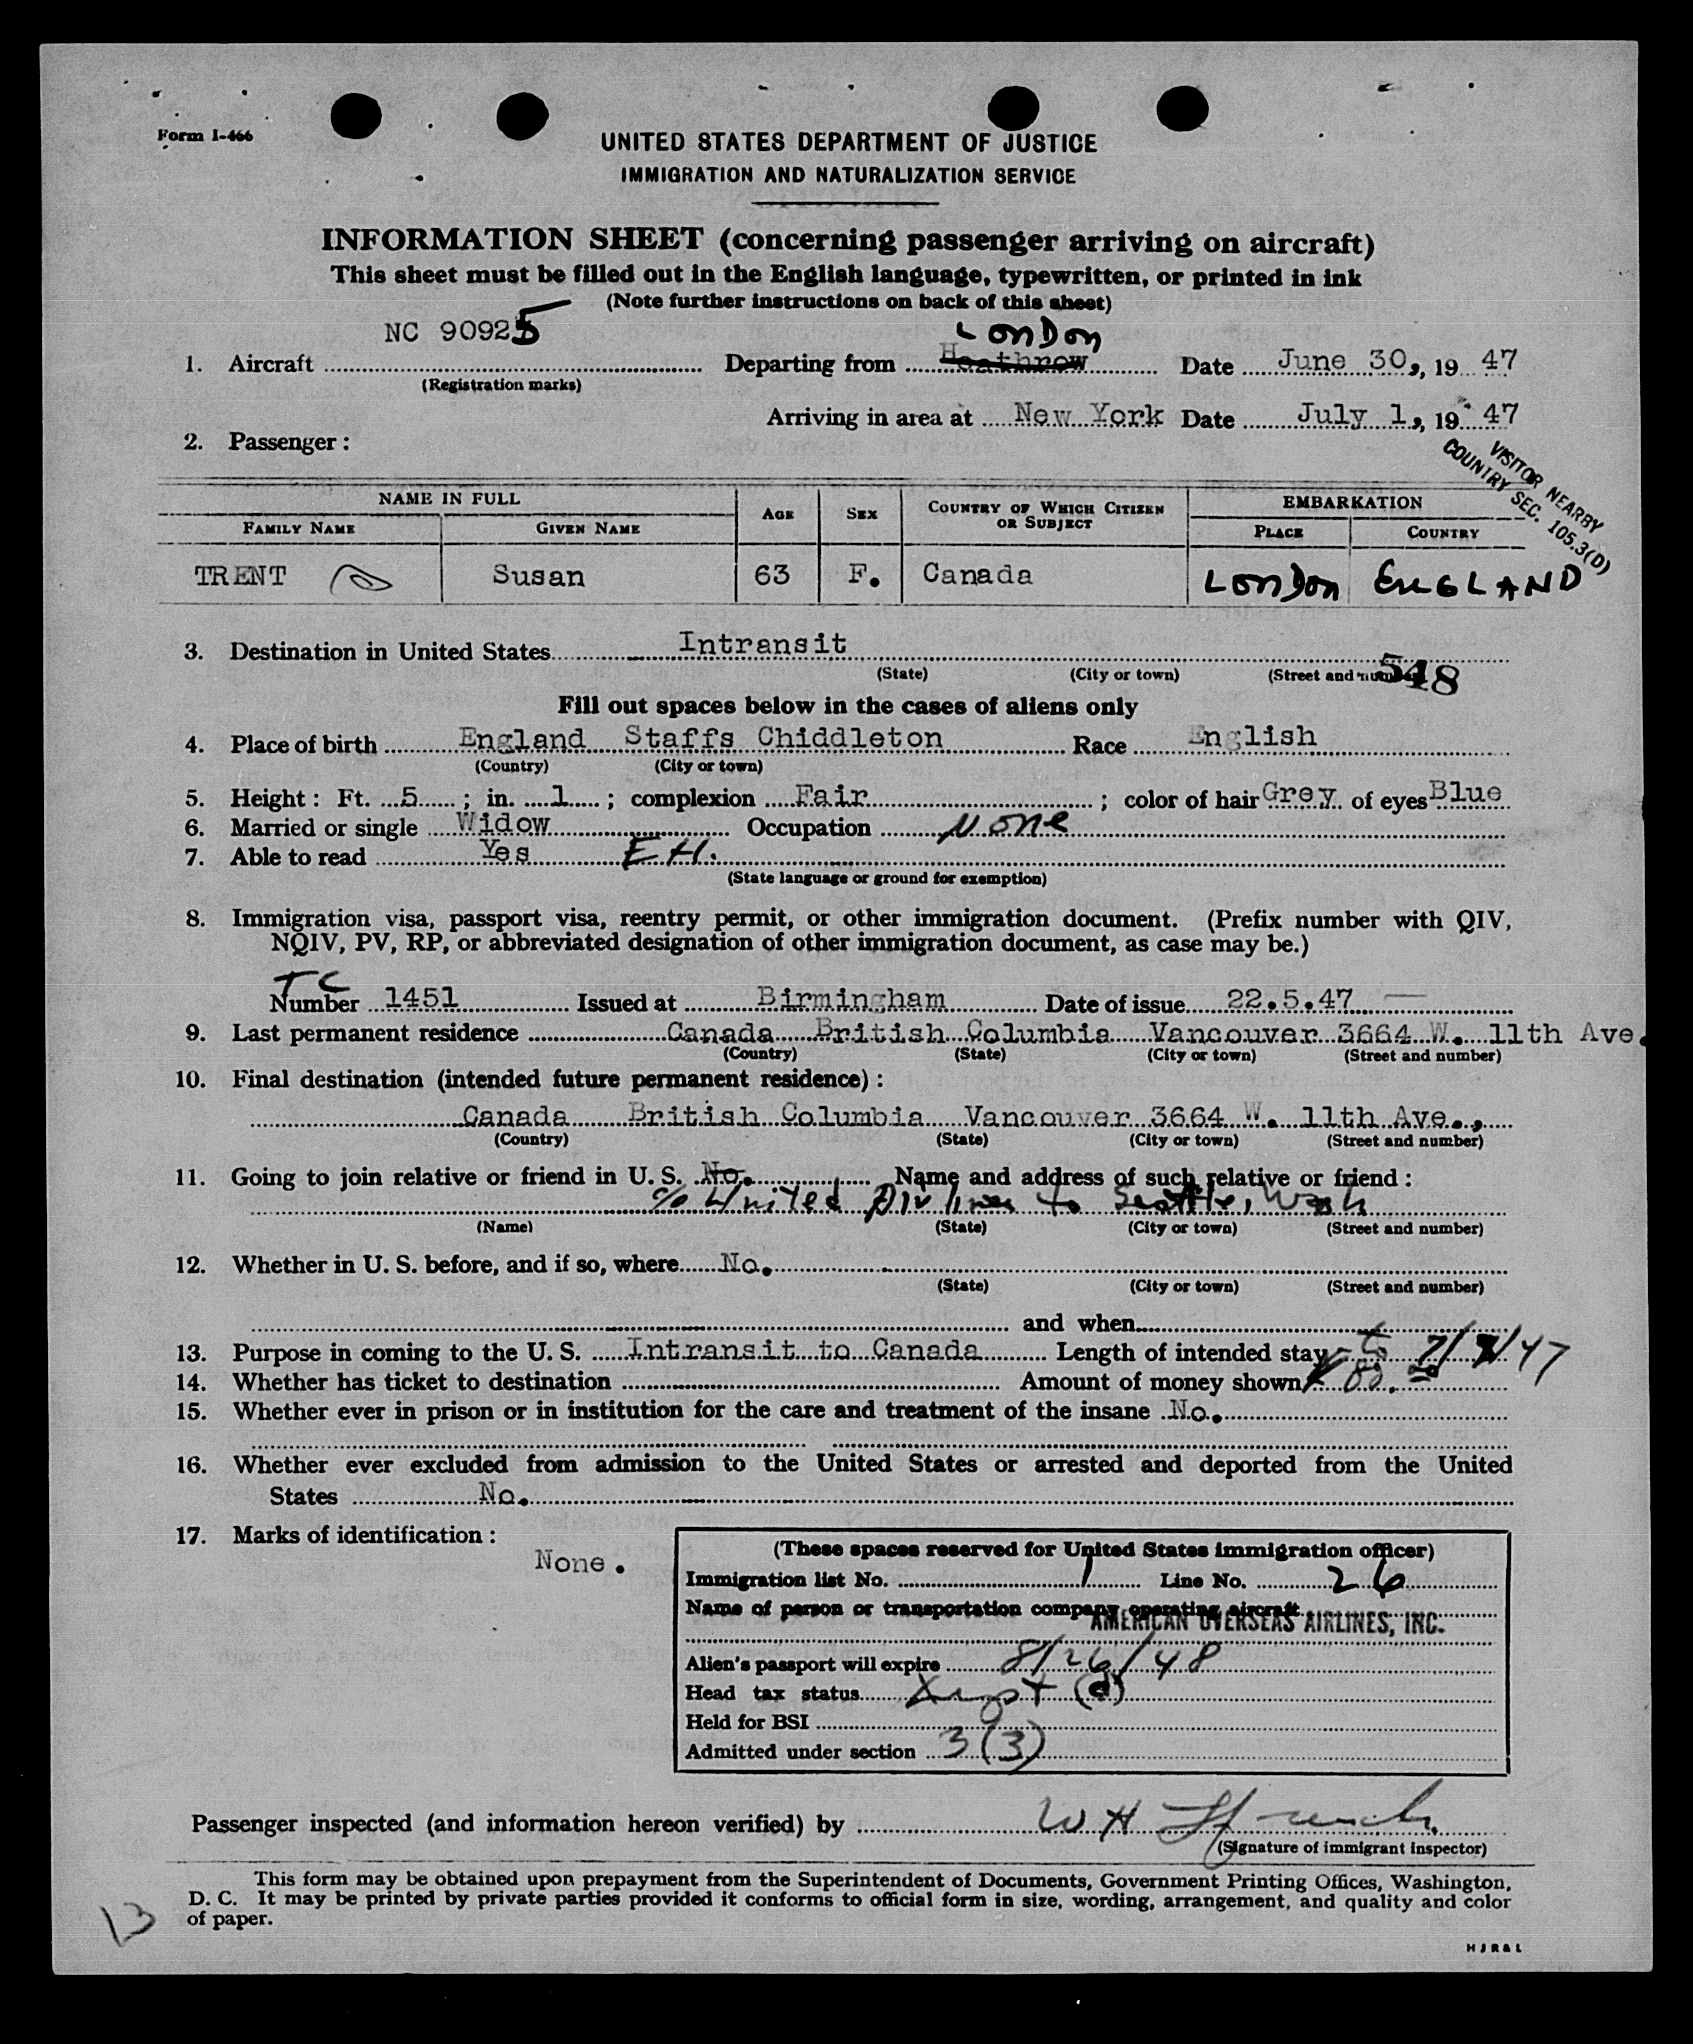 Form I-466
UNITED STATES DEPARTMENT OF JUSTICE
IMMIGRATION AND NATURALIZATION SERVICE
INFORMATION SHEET (concerning passenger arriving on aircraft)
This sheet must be filled out in the English language, typewritten, or printed in ink
(Note further instructions on back of this sheet)
NC 90925 London
1. Aircraft Departing from Heathrow Date June 30, 19 47
(Registration marks)
Arriving in area at New York Date July 1, 19 47
2. Passenger:
VISITOR NEARBY
COUNTRY SEC. 105.3(D)
NAME IN FULL AGE SEX COUNTRY OF WHICH CITIZEN OR SUBJECT EMBARKATION
FAMILY NAME GIVEN NAME PLACE COUNTRY
TRENT Susan 63 F. Canada London ENGLAND
3. Destination in United States Intransit
(State) (City or town) (Street and number) 548
Fill out spaces below in the cases of aliens only
4. Place of birth England Staffs Chiddleton Race English
(Country) (City or town)
5. Height: Ft. 5; in. 1; complexion Fair; color of hair Grey of eyes Blue
6. Married or single Widow Occupation None
7. Able to read Yes
(State language or ground for exemption)
8. Immigration visa, passport visa, reentry permit, or other immigration document. (Prefix number with QIV,
NQIV, PV, RP, or abbreviated designation of other immigration document, as case may be.)
TC
Number 1451 Issued at Birmingham Date of issue 22.5.47
9. Last permanent residence Canada British Columbia Vancouver 3664 W. 11th Ave.
(Country) (State) (City or town) (Street and number)
10. Final destination (intended future permanent residence):
Canada British Columbia Vancouver 3664 W. 11th Ave.,
(Country) (State) (City or town) (Street and number)
11. Going to join relative or friend in U. S. No. Name and address of such relative or friend:
c/o United Air lines to Seattle, Wash
(Name) (State) (City or town) (Street and number)
12. Whether in U. S. before, and if so, where No.
(State) (City or town) (Street and number)
and when
13. Purpose in coming to the U. S. Intransit to Canada Length of intended stay to 7/ /47
14. Whether has ticket to destination Amount of money shown
15. Whether ever in prison or in institution for the care and treatment of the insane No.
16. Whether ever excluded from admission to the United States or arrested and deported from the United
States No.
17. Marks of identification:
None.
(These spaces reserved for United States immigration officer)
Immigration list No. 1 Line No. 26
Name of person or transportation company operating aircraft
AMERICAN OVERSEAS AIRLINES, INC.
Alien's passport will expire 8/26/48
Head tax status (d)
Held for BSI
Admitted under section 3(3)
Passenger inspected (and information hereon verified) by W H
(Signature of immigrant inspector)
This form may be obtained upon prepayment from the Superintendent of Documents, Government Printing Offices, Washington,
D. C. It may be printed by private parties provided it conforms to official form in size, wording, arrangement, and quality and color
of paper.
13
H J R & L